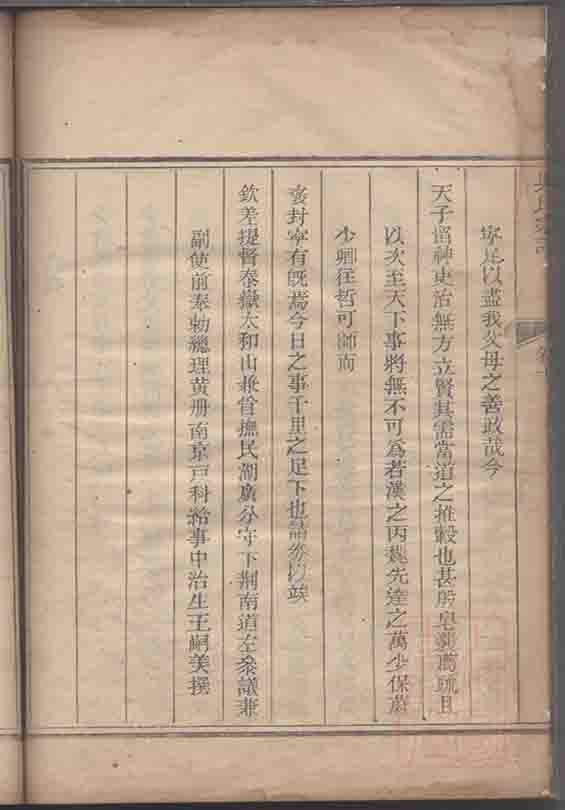 寧足以盡我父母之善政哉今
天子留神吏治無方立賢其需當道之推轂也甚殷皂剡薦疏且
以次至天下事將無不可為若漢之丙魏先達之萬少保蔚
少卿往哲可師而
褒封寧有旣焉今日之事千里之足下也請為以竢
欽差提督泰嶽太和山兼管撫民湖廣分守下荆南道左叅議兼
副使前奉勑總理黄册南京戸科給事中治生王嗣美撰